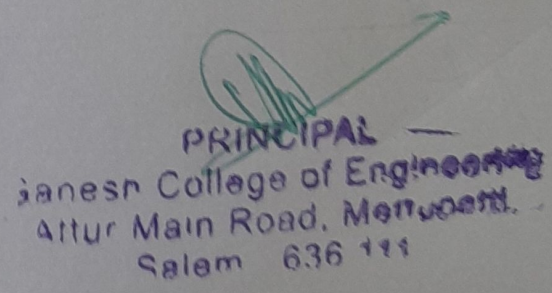 PRINCIPAL
Ganesh College of Engineering
Attur Main Road,
Salem 636 111